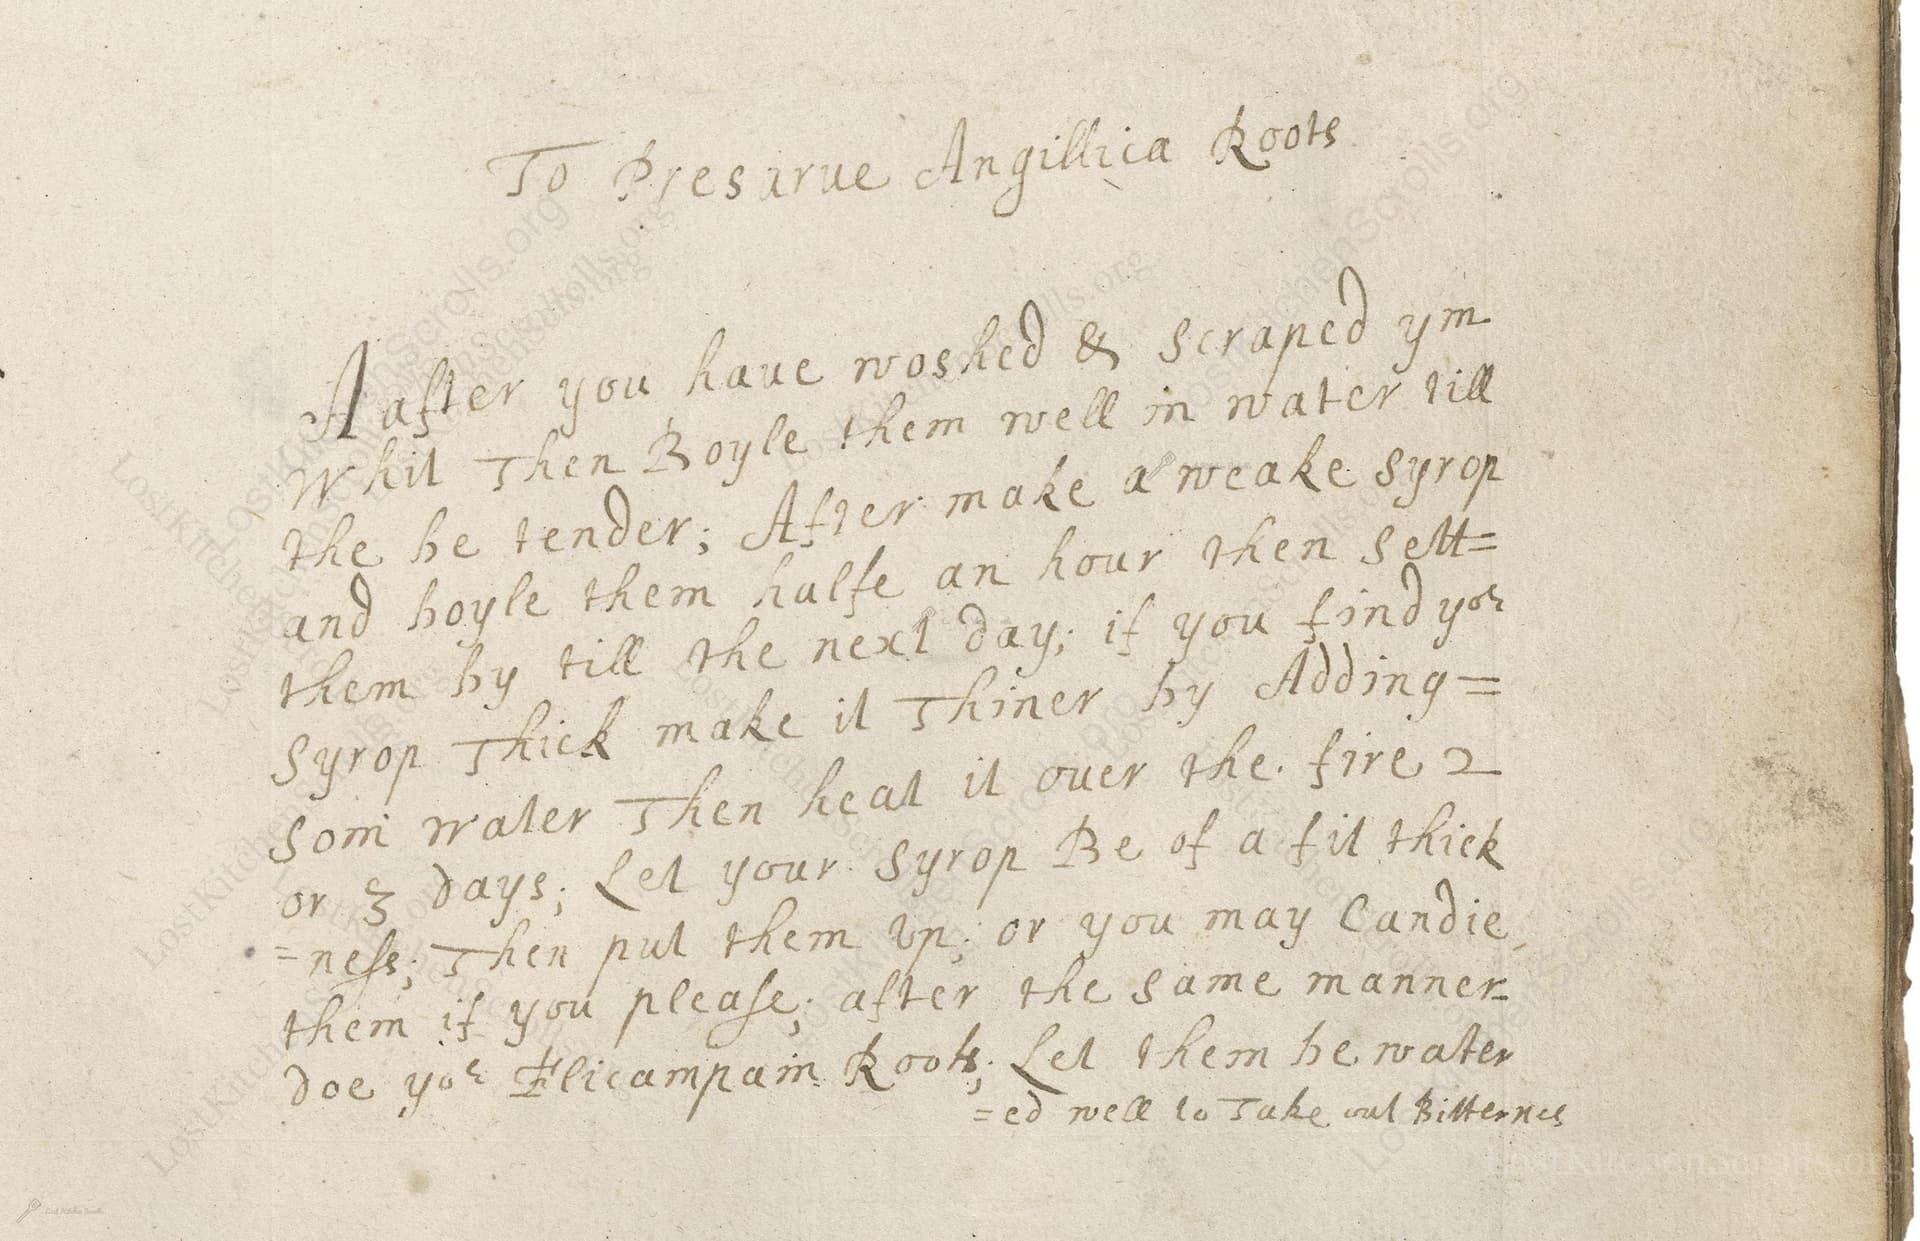 To Presarue Angillica Roots
A after you haue woshed & scraped ym
whit Then Boyle them well in water till
the be tender; After make a weake syrop
and boyle them halfe an hour then sett=
them by till the next day; if you find yor
syrop Thick make it Thiner by Adding=
som water Then heat it ouer the fire 2
or 3 days; Let your syrop Be of a fit thick
=ness; Then put them vp; or you may Candie
them if you please; after the same manner=
doe yor Elicampain Roots; Let them be water
=ed well to Take out Bitternes
LostKitchenScrolls.org